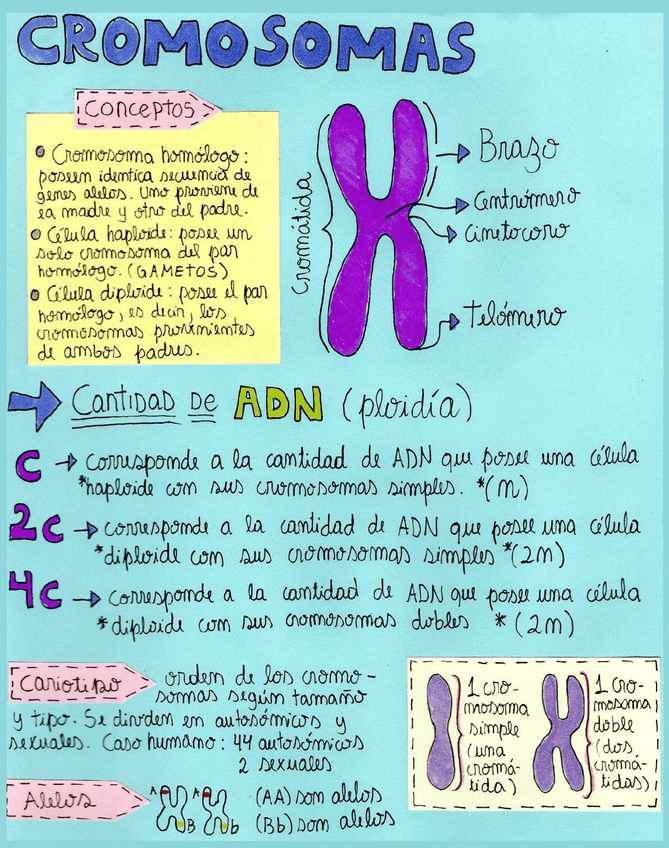 CROMOSOMAS
Conceptos
Cromosoma homólogo:
poseen identica secuencia de
genes alelos. Uno proviene de
la madre y otro del padre.
Célula haploide: posee un
solo cromosoma del par
homólogo. (GAMETOS)
Célula diploide: posee el par
homólogo, es decir, los
cromosomas provenientes
de ambos padres.
Cromátida
Brazo
Centrómero
Cinetocoro
Telómero
Cantidad de ADN (ploidía)
C → corresponde a la cantidad de ADN que posee una célula
*haploide con sus cromosomas simples. *(n)
2C → corresponde a la cantidad de ADN que posee una célula
*diploide con sus cromosomas simples *(2n)
4C → corresponde a la cantidad de ADN que posee una célula
*diploide con sus cromosomas dobles *(2n)
Cariotipo
orden de los cromo-
somas según tamaño
y tipo. Se dividen en autosómicos y
sexuales. Caso humano: 44 autosómicos
2 sexuales
1 cro-
mosoma
simple
(una
cromá-
tida)
1 cro-
mosoma
doble
(dos
cromá-
tidas)
Alelos
A A
B b
(AA) son alelos
(Bb) son alelos